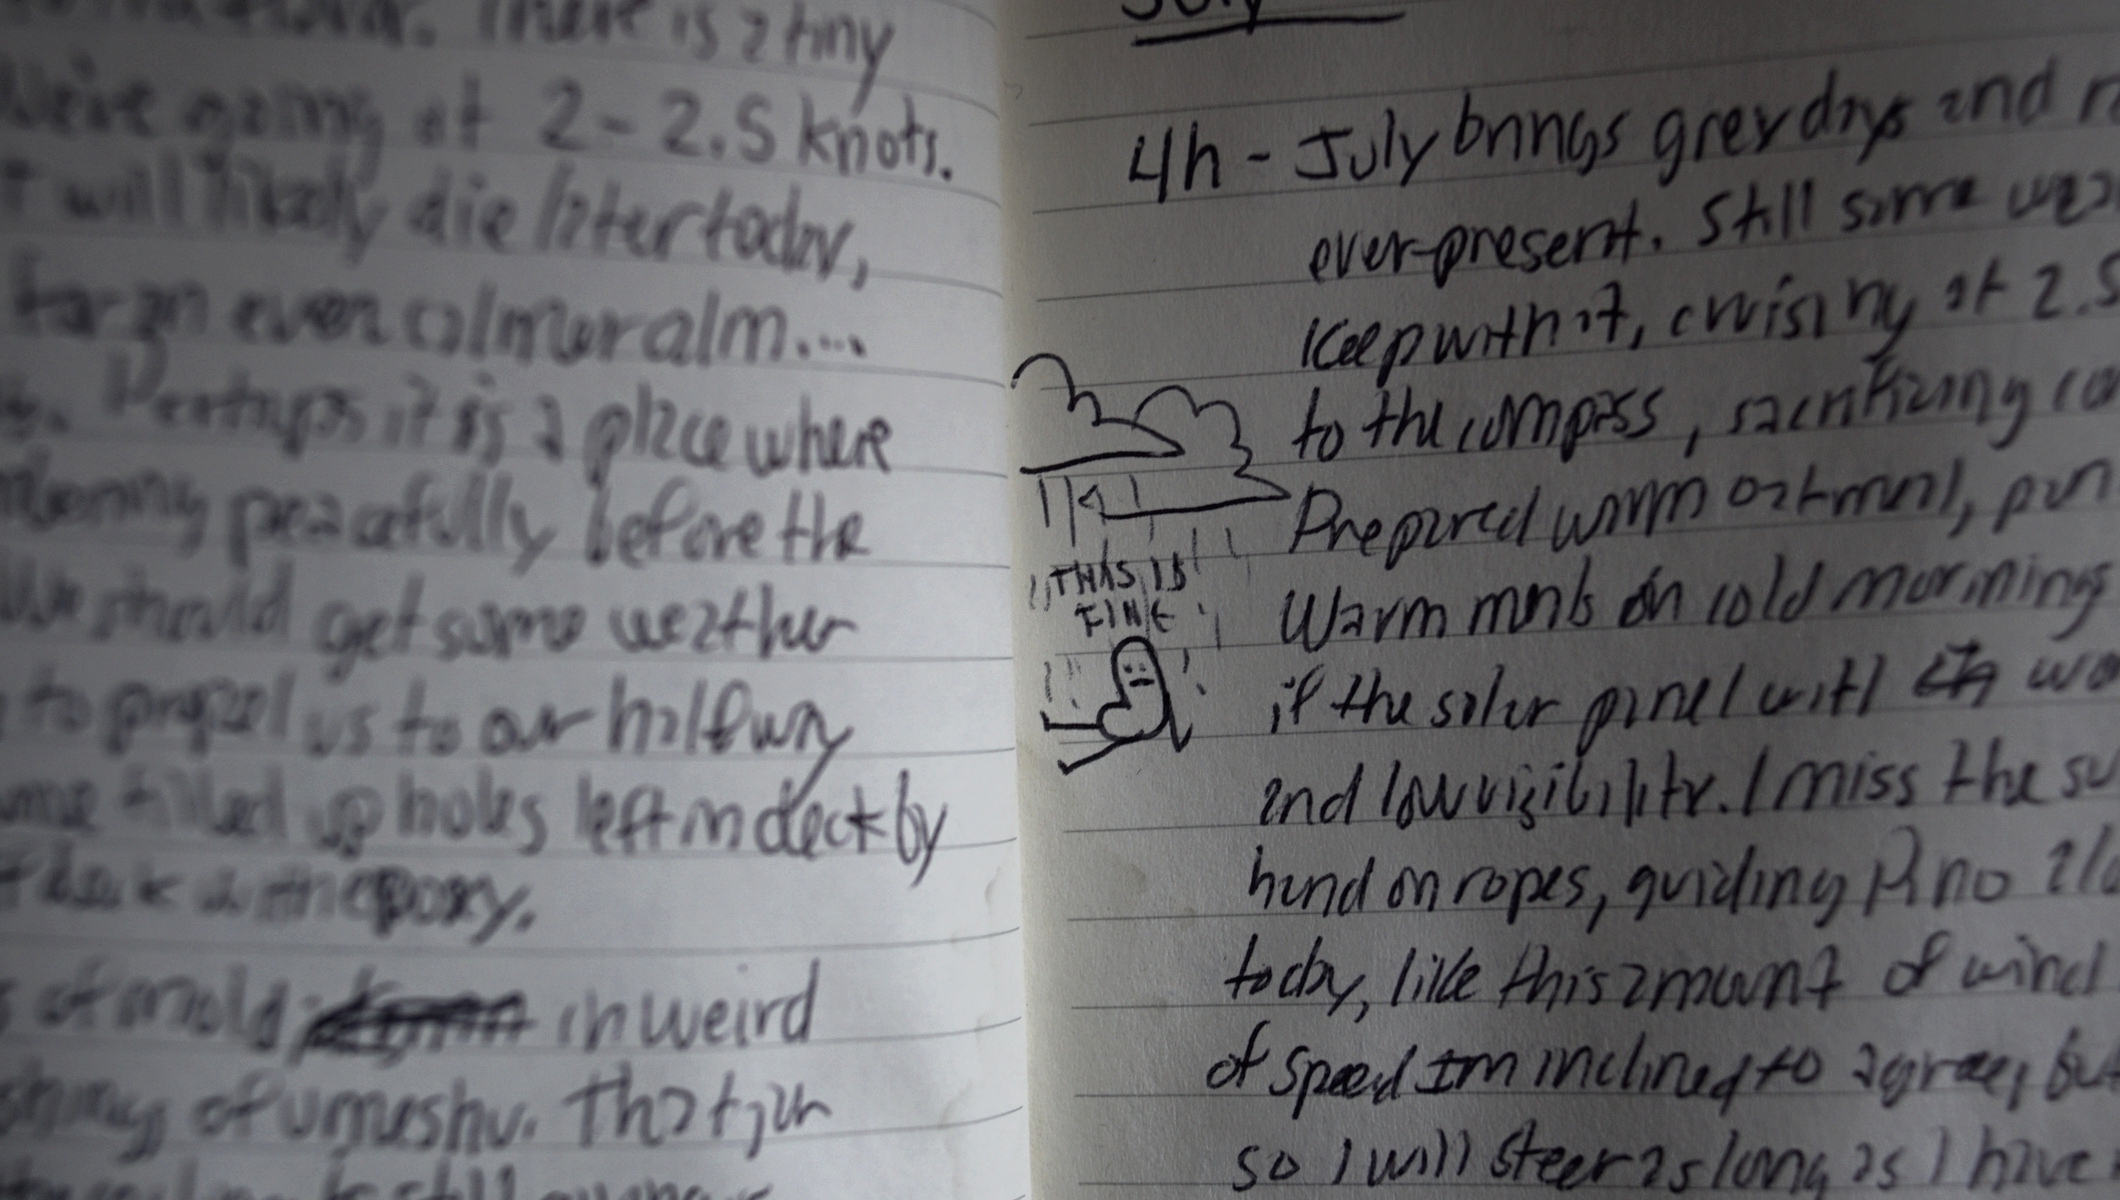 There is a tiny
We're going at 2-2.5 knots.
will likely die later today,
for an even calmer calm....
Perhaps it is a place where
peacefully before the
We should get some weather
to propel us to our halfway
filled up holes left in deck by
epoxy.
of mold in weird
of umeshu. That jar
July
4h - July brings grey days and
ever-present. Still some
Keep with it, cruising at 2.5
to the compass, sacrificing
Prepared warm oatmeal,
Warm meals on cold mornings
if the solar panel will
and low visibility. I miss the
hand on ropes, guiding Pino
today, like this amount of wind
of speed Im inclined to agree, but
so I will steer as long as I have
THIS IS
FINE